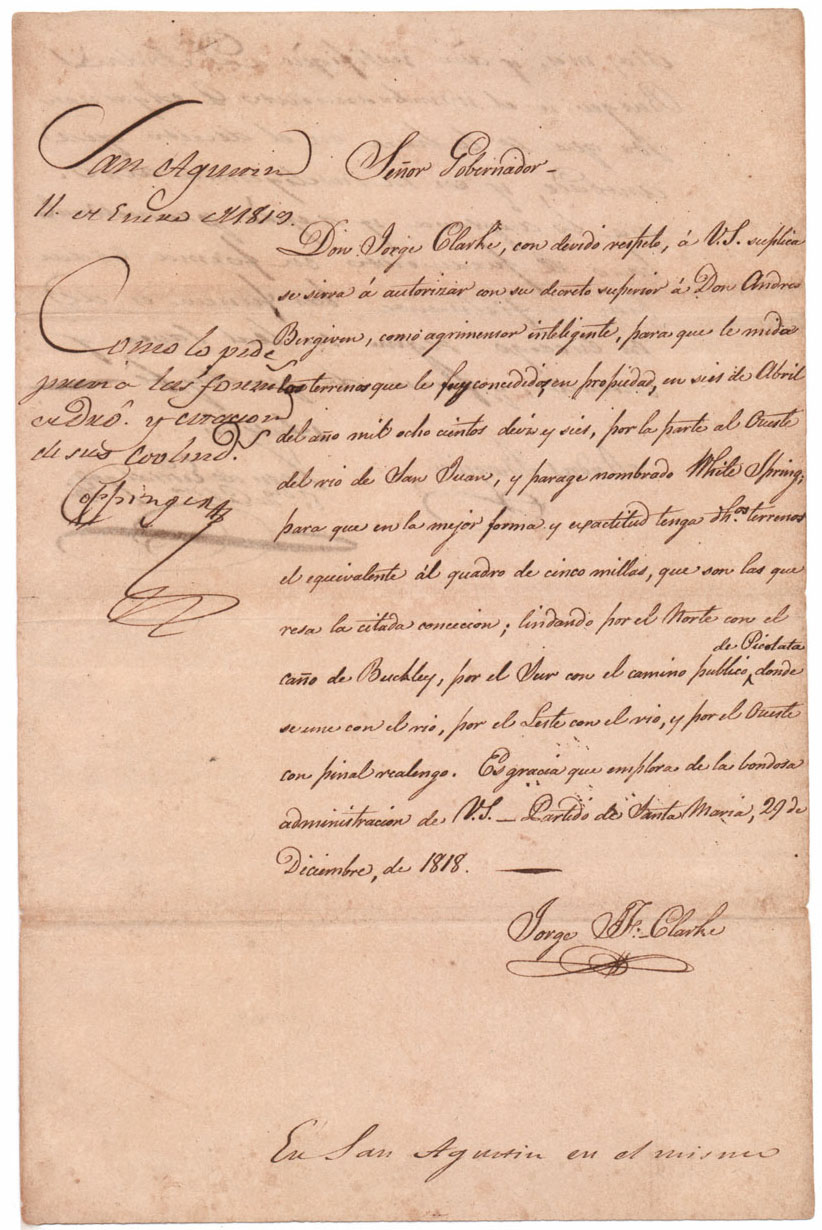 San Agustin
11. de Enero de 1819.
Como lo pide
previa las formas
de dro. y citacion
de sus colind.s
Coppinger
Señor Gobernador_
Don Jorge Clarke, con devido respeto, á V.S. suplica
se sirva á autorizar con su decreto superior á Don Andres
Burgiven, como agrimensor inteligente, para que le mida
los terrenos que le fuy concedidos, en propiedad, en sies de Abril
del año mil ocho cientos deviz y sies, por la parte al Oueste
del rio de San Juan, y parage nombrado White Spring;
para que en la mejor forma y exactitud tenga dhos. terrenos
el equivalente ál quadro de cinco millas, que son las que
resa la citada concecion; lindando por el Norte con el
caño de Buckley, por el Sur con el camino publico de Picolata, donde
se une con el rio, por el Leste con el rio, y por el Oueste
con pinal realengo. Es gracia que emplora de la bondosa
administracion de V.S. _ Partido de Santa Maria, 29 de
Diciembre, de 1818. —
Jorge J. F. Clarke
En San Agustin en el mismo